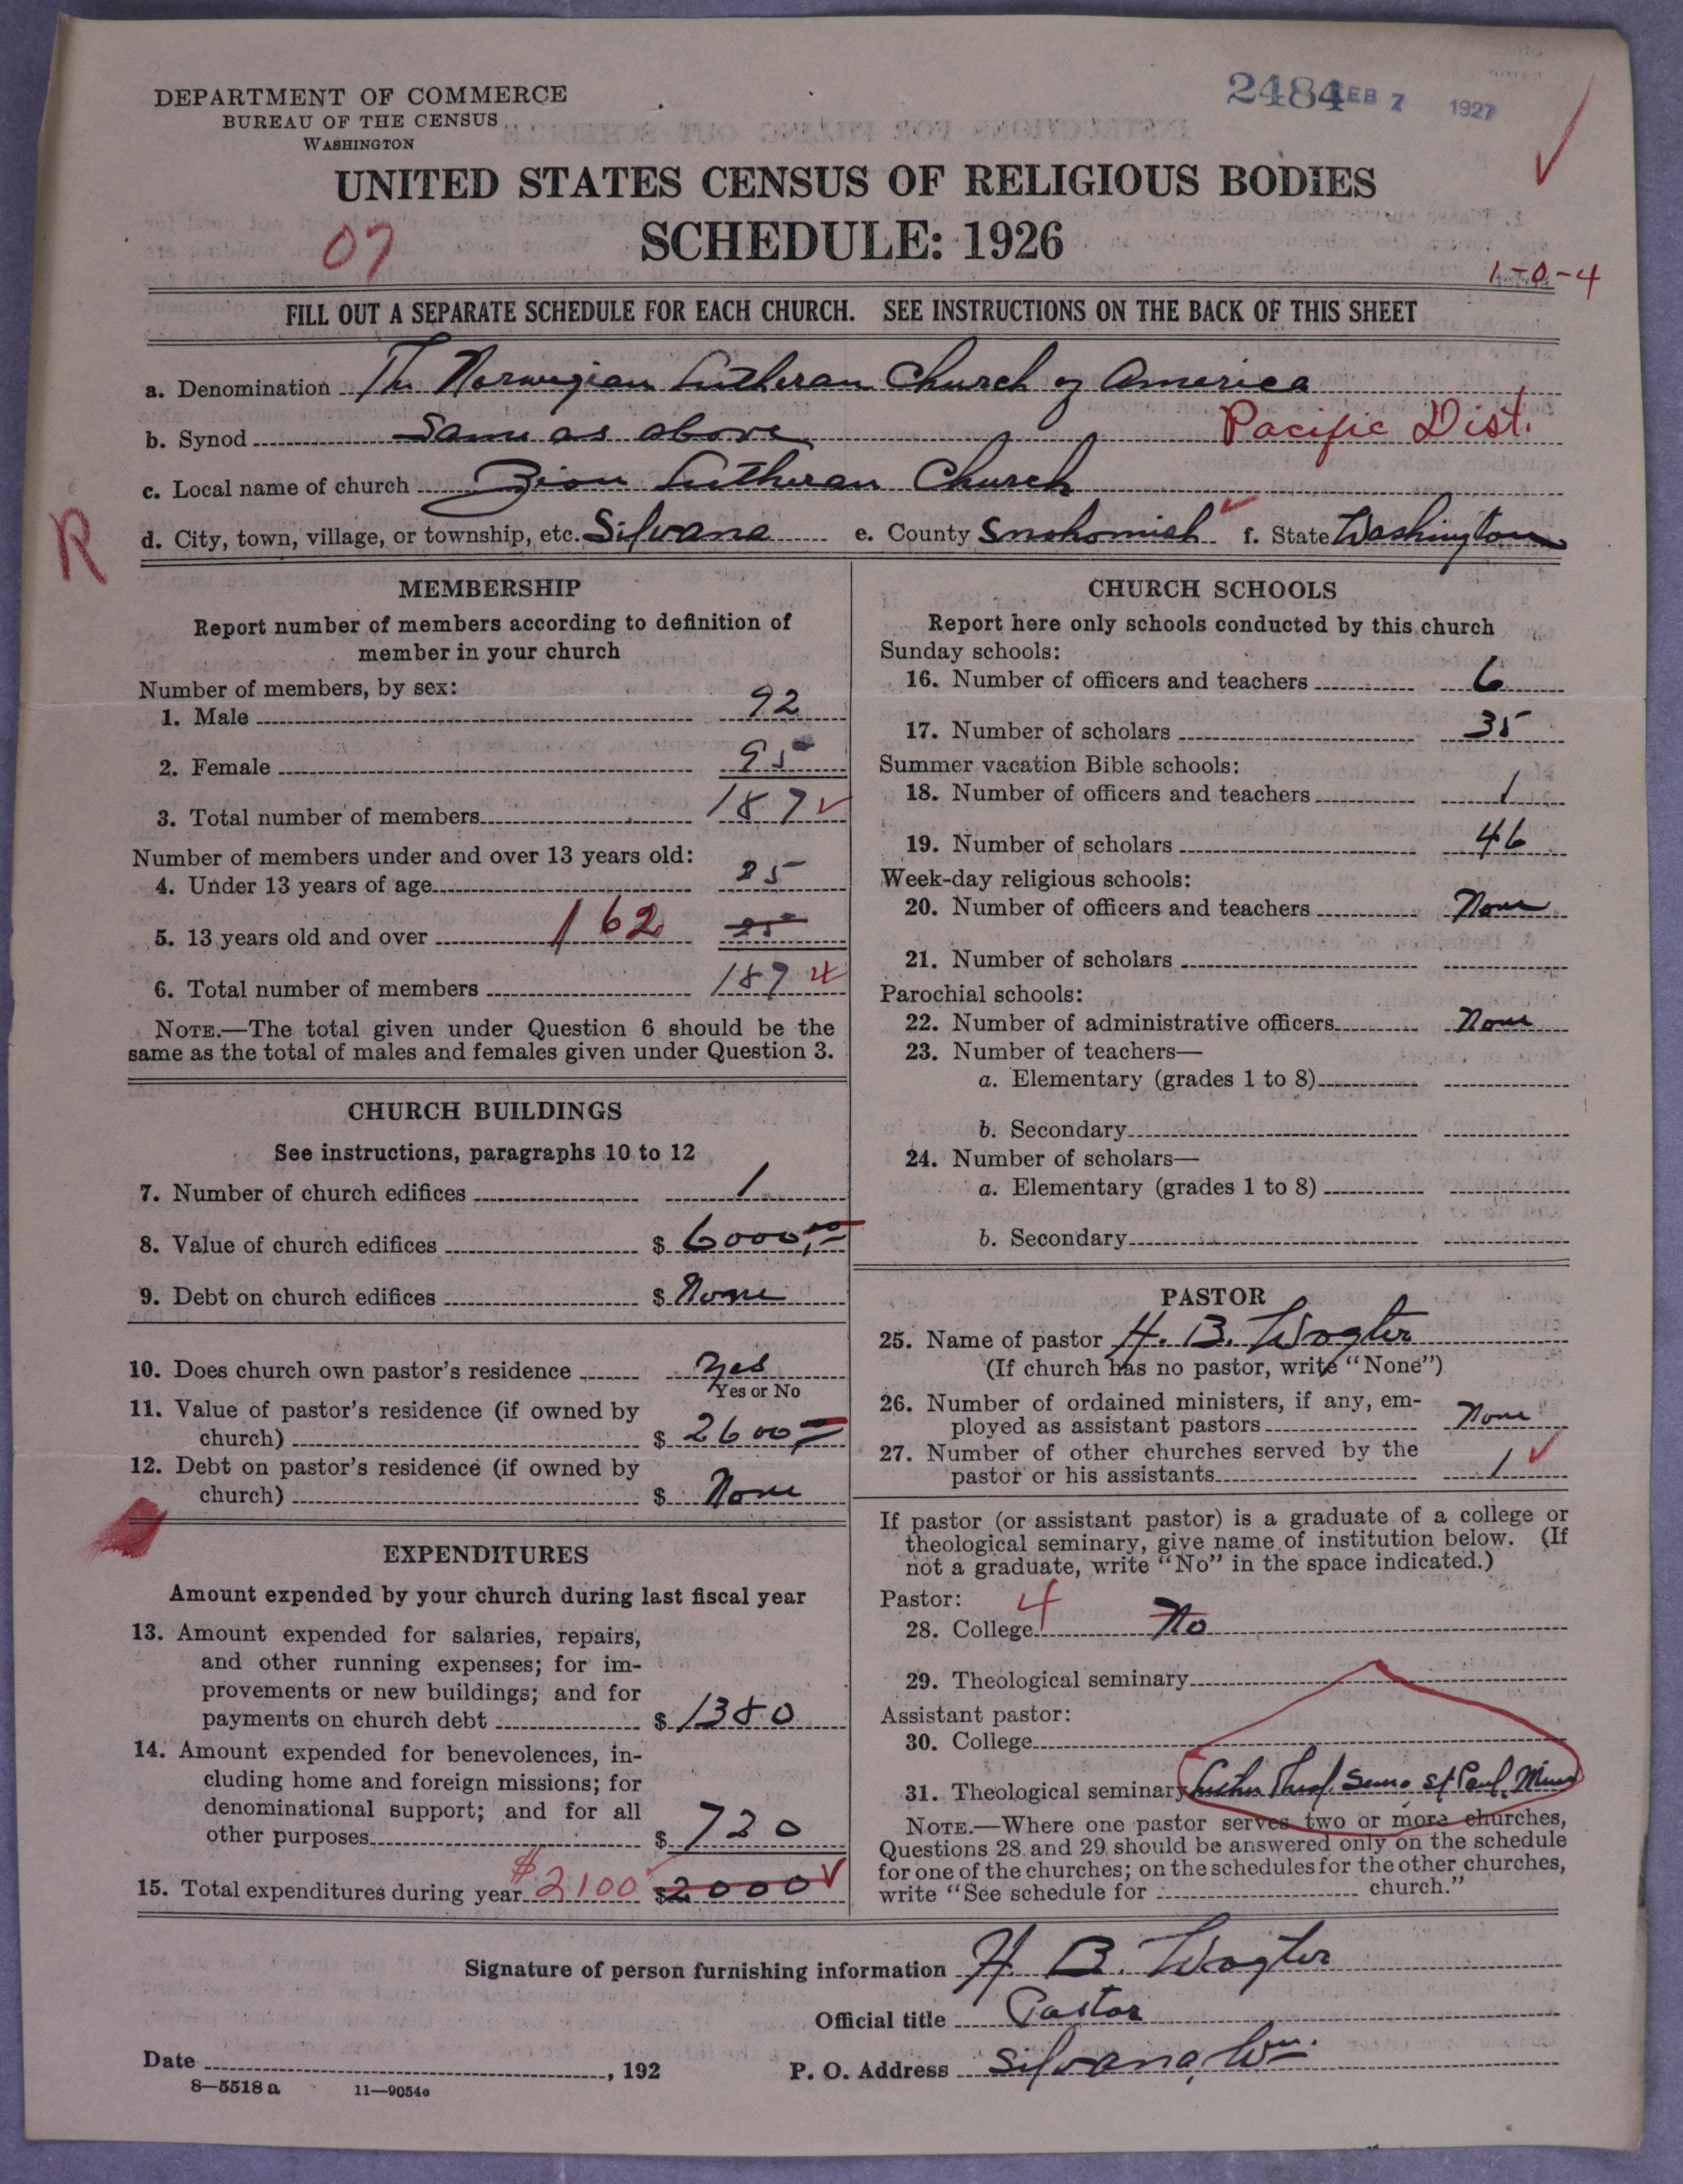 DEPARTMENT OF COMMERCE
BUREAU OF THE CENSUS
WASHINGTON
2484 FEB 7 1927
UNITED STATES CENSUS OF RELIGIOUS BODIES
SCHEDULE: 1926
07
1-0-4
FILL OUT A SEPARATE SCHEDULE FOR EACH CHURCH. SEE INSTRUCTIONS ON THE BACK OF THIS SHEET
a. Denomination The Norwegian Lutheran Church of America
b. Synod Same as above Pacific Dist.
c. Local name of church Zion Lutheran Church
R
d. City, town, village, or township, etc. Silvana e. County Snohomish f. State Washington
MEMBERSHIP
Report number of members according to definition of
member in your church
Number of members, by sex:
1. Male 92
2. Female 95
3. Total number of members 187
Number of members under and over 13 years old:
4. Under 13 years of age 25
5. 13 years old and over 162
6. Total number of members 187
NOTE.—The total given under Question 6 should be the
same as the total of males and females given under Question 3.
CHURCH BUILDINGS
See instructions, paragraphs 10 to 12
7. Number of church edifices 1
8. Value of church edifices $ 6000,00
9. Debt on church edifices $ None
10. Does church own pastor's residence Yes
Yes or No
11. Value of pastor's residence (if owned by
church) $ 2600
12. Debt on pastor's residence (if owned by
church) $ None
EXPENDITURES
Amount expended by your church during last fiscal year
13. Amount expended for salaries, repairs,
and other running expenses; for im-
provements or new buildings; and for
payments on church debt $ 1380
14. Amount expended for benevolences, in-
cluding home and foreign missions; for
denominational support; and for all
other purposes $ 720
15. Total expenditures during year $2100 $2000
CHURCH SCHOOLS
Report here only schools conducted by this church
Sunday schools:
16. Number of officers and teachers 6
17. Number of scholars 35
Summer vacation Bible schools:
18. Number of officers and teachers 1
19. Number of scholars 46
Week-day religious schools:
20. Number of officers and teachers None
21. Number of scholars
Parochial schools:
22. Number of administrative officers None
23. Number of teachers—
a. Elementary (grades 1 to 8)
b. Secondary
24. Number of scholars—
a. Elementary (grades 1 to 8)
b. Secondary
PASTOR
25. Name of pastor H. B. Wogter
(If church has no pastor, write "None")
26. Number of ordained ministers, if any, em-
ployed as assistant pastors None
27. Number of other churches served by the
pastor or his assistants 1
If pastor (or assistant pastor) is a graduate of a college or
theological seminary, give name of institution below. (If
not a graduate, write "No" in the space indicated.)
Pastor: 4
28. College No
29. Theological seminary
Assistant pastor:
30. College
31. Theological seminary Luther Theol. Sem. St Paul, Minn
NOTE.—Where one pastor serves two or more churches,
Questions 28 and 29 should be answered only on the schedule
for one of the churches; on the schedules for the other churches,
write "See schedule for church."
Signature of person furnishing information H. B. Wogter
Official title Pastor
Date , 192
P. O. Address Silvana, Wn.
8—5518a 11—9054e